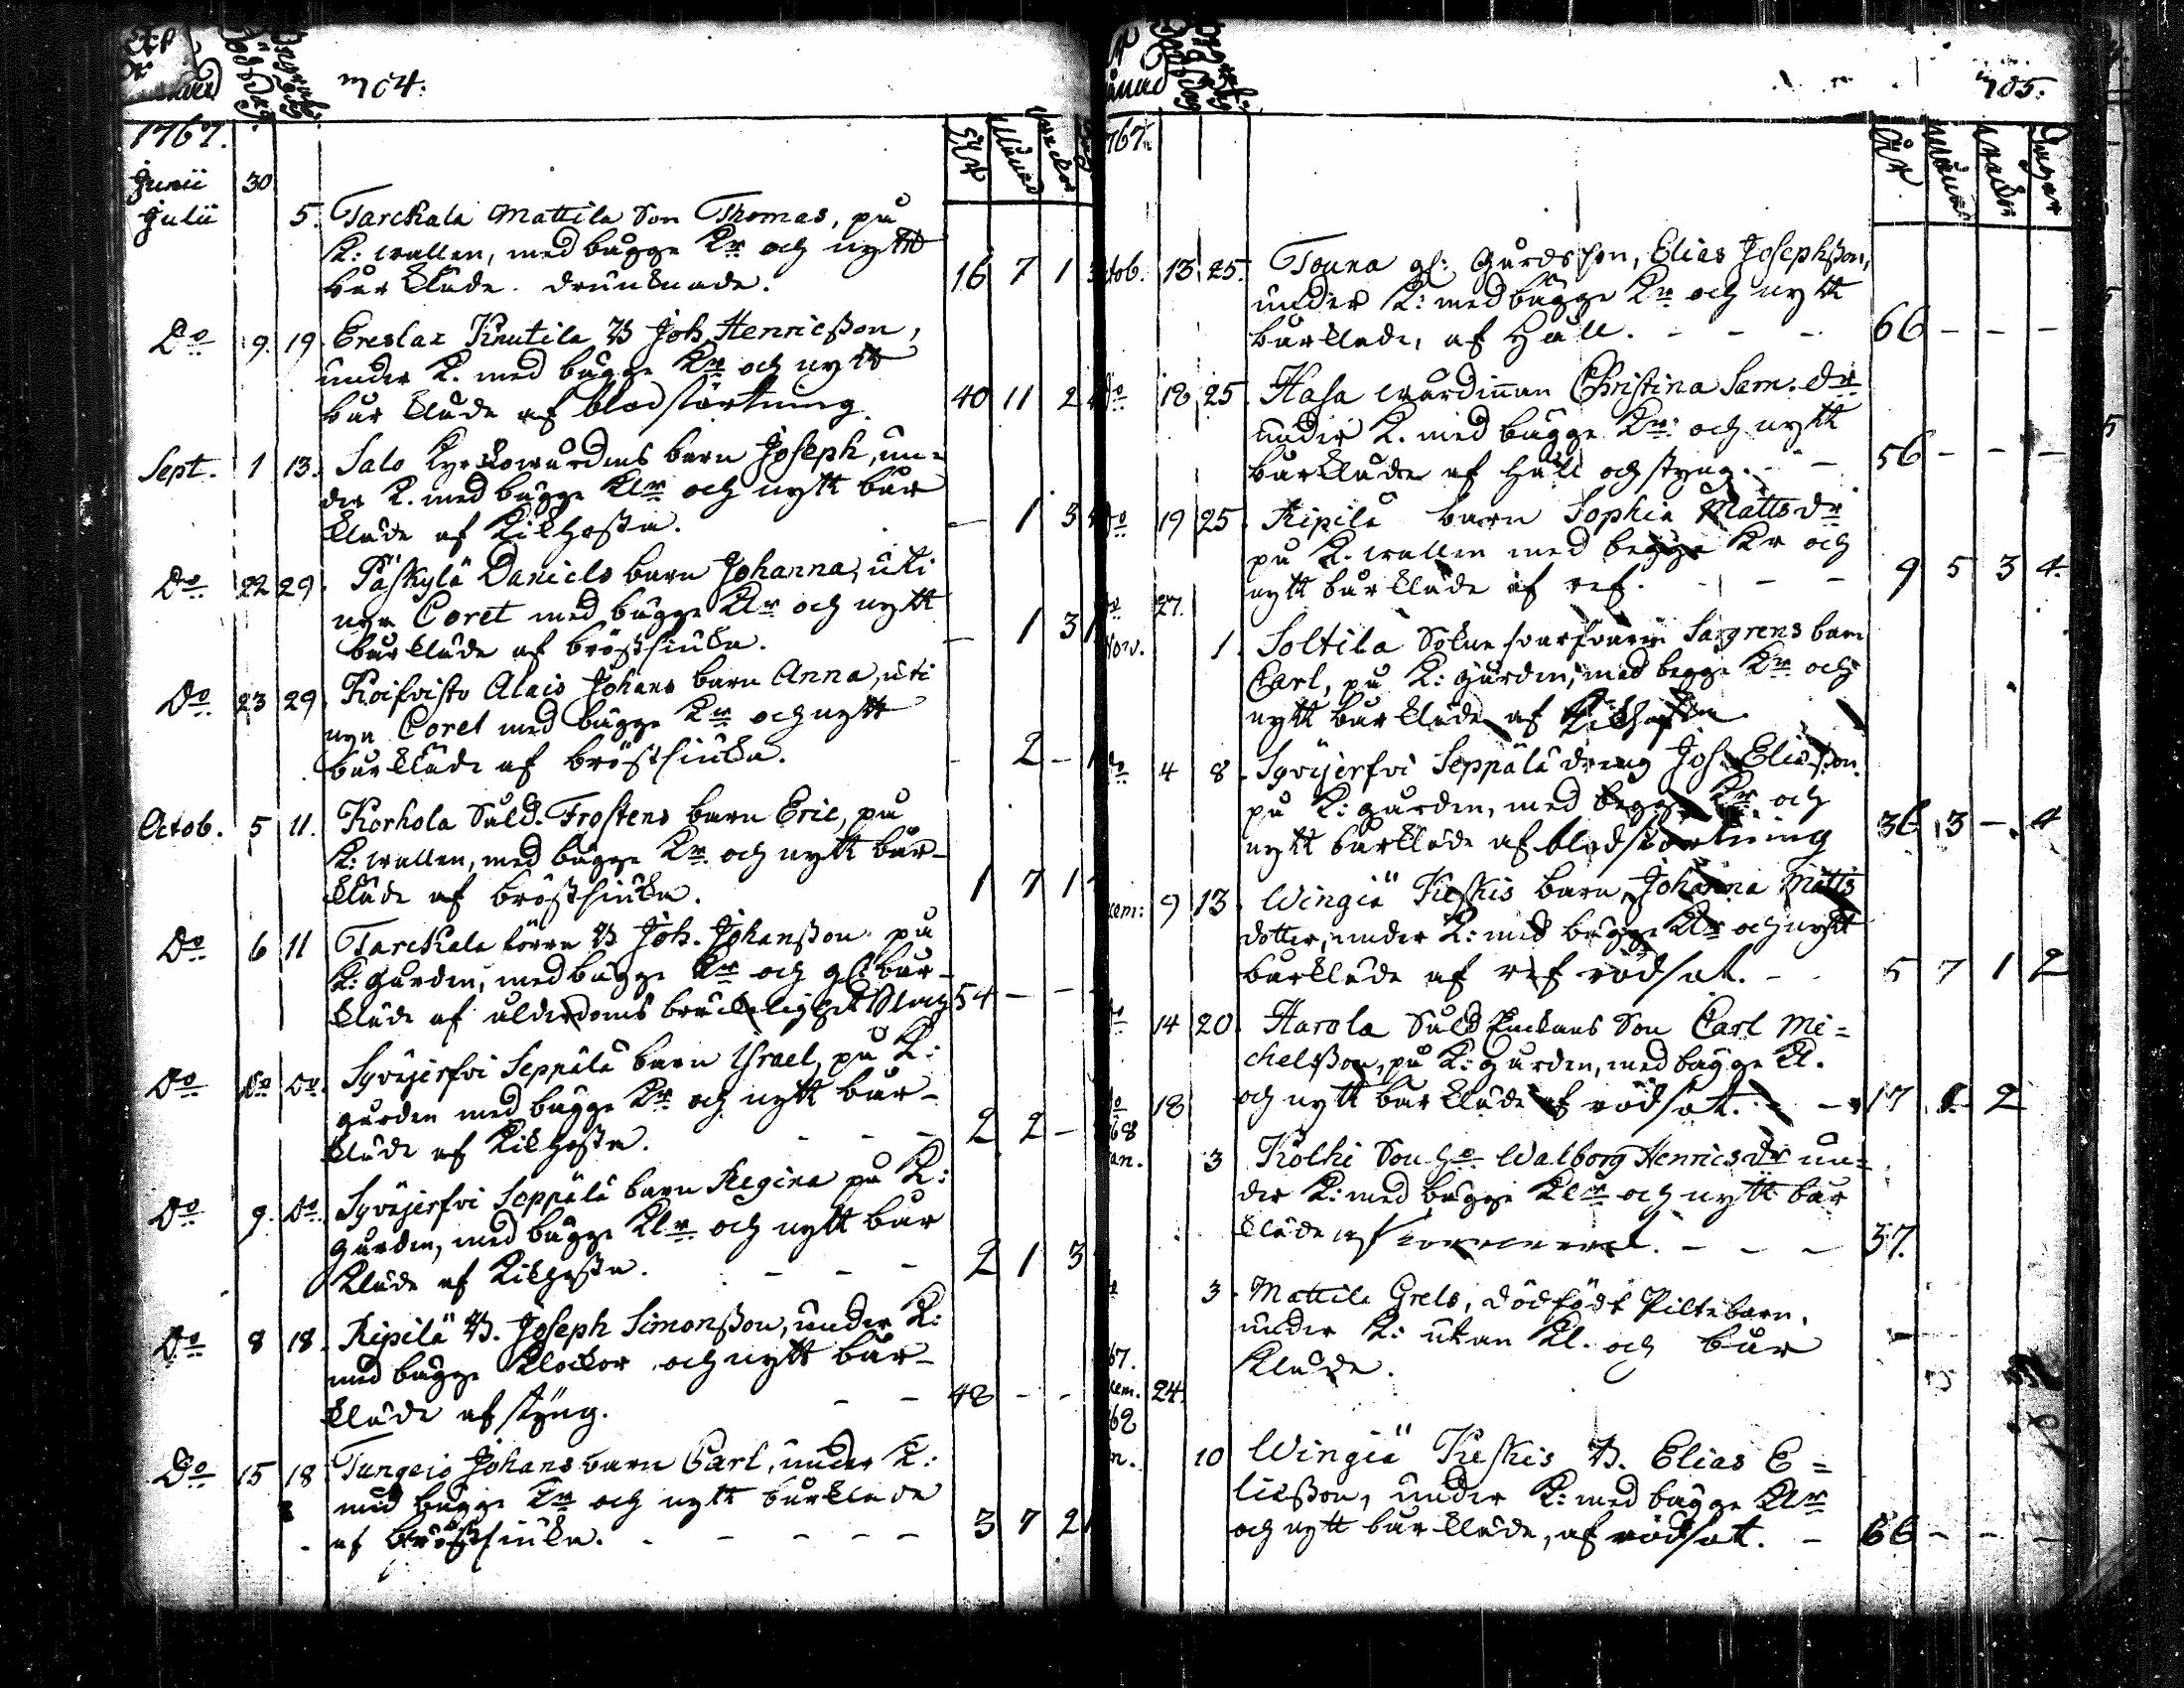 704.
1767.
Junii 30
Julii 5. Tarckala Mattila Son Thomas, på
K: wallen, med bägge Kr och nytt
bår kläde. drunknade. 16 7 1 3
Do 9. 19 Greslax Knutila B Joh. Henricsson,
under K. med bägge Kr och nytt
bår kläde af blodstörtning. 40 11 2
Sept. 1 13. Salo Kyrckowärdens barn Joseph, un-
der K. med bägge Klr och nytt bår
kläde af Kikhosta. - 1 3
Do 22 29. Päskylä Daniels barn Johanna, uti
nya Coret med bägge Klr och nytt
bårkläde af bröstsiuka. - 1 3 1
Do 23 29. Koifvisto Alais Johans barn Anna, uti
nya Coret med bägge Kr och nytt
bårkläde af bröstsiuka. - 2 -
Octob. 5 11. Korhola Sold. Frostens barn Eric, på
K: wallen, med bägge Kr och nytt bår-
kläde af bröstsiuka. 1 7 1
Do 6 11 Tarckala B Joh. Johansson på
K: gården, med bägge Kr och gl: bår-
kläde af ålderdoms bräcklighet 54 - -
Do Do Do. Syväjerfvi Seppälä barn Israel, på K:
gården med bägge Kr och nytt bår-
kläde af Kikhosta. - - - 2 2 -
Do 9. Do. Syväjerfvi Seppälä barn Regina på K:
gården, med bägge Klr och nytt bår
kläde af Kikhosta. - - - 2 1 3
Do 8 18. Ripilä B. Joseph Simonsson, under K:
med bägge Klockor och nytt bår-
kläde af styng. - - 48 - -
Do 15 18 Tungeis Johans barn Carl, under K:
med bägge Kr och nytt bårkläde
af bröstsiuka. - - - - - 3 7 2
705.
767.
År Månad Weckor Dagar
tob. 13 25. Touna gl: Gårdsson, Elias Josephsson,
under K: med bägge Kr och nytt
bårkläde, af Håll. - - - 66 - - -
Do 18 25 Hasa wärdinnan Christina Sam. dr
under K. med bägge Kr och nytt
bårkläde af håll och styng. - - 56 - - -
Do 19 25. Ripilä barn Sophia Matts dr
på K. wallen med begge Kr och
nytt bårkläde af ref. - - - 9 5 3 4.
27.
Nov. 1. Soltila Sokne Sagrens barn
Carl, på K: gården, med begge Kr och
nytt bårkläde af Kikhosta
Do 4 8. Syväjerfvi Seppälä dreng Joh. Eliasson.
på K: gården, med begge Kr och
nytt bårkläde af blodstörtning 36 3 - 4
cem: 9 13. Wingiä Keskis barn Johanna Matts
dotter, under K: med bägge Klr och nytt
bårkläde af ref rödsot. - 5 7 1 2
Do 14 20. Harola Sold Enckans Son Carl Mi=
chelsson, på K: gården, med bägge Kl.
och nytt bårkläde af rödsot. - - 17 2
Do 18
68
an. 3 Kolhi Son Walborg Henrics dr un=
der K: med bägge Klr och nytt bår
kläde af - - - 37.
3. Mattila Grels, dödfödt Piltebarn.
under K: utan Kl. och bår
kläde.
67.
cem. 24.
68
n. 10 Wingiä Keskis B. Elias E=
liesson, under K: med bägge Klr
och nytt bårkläde, af rödsot. - 66 - - -